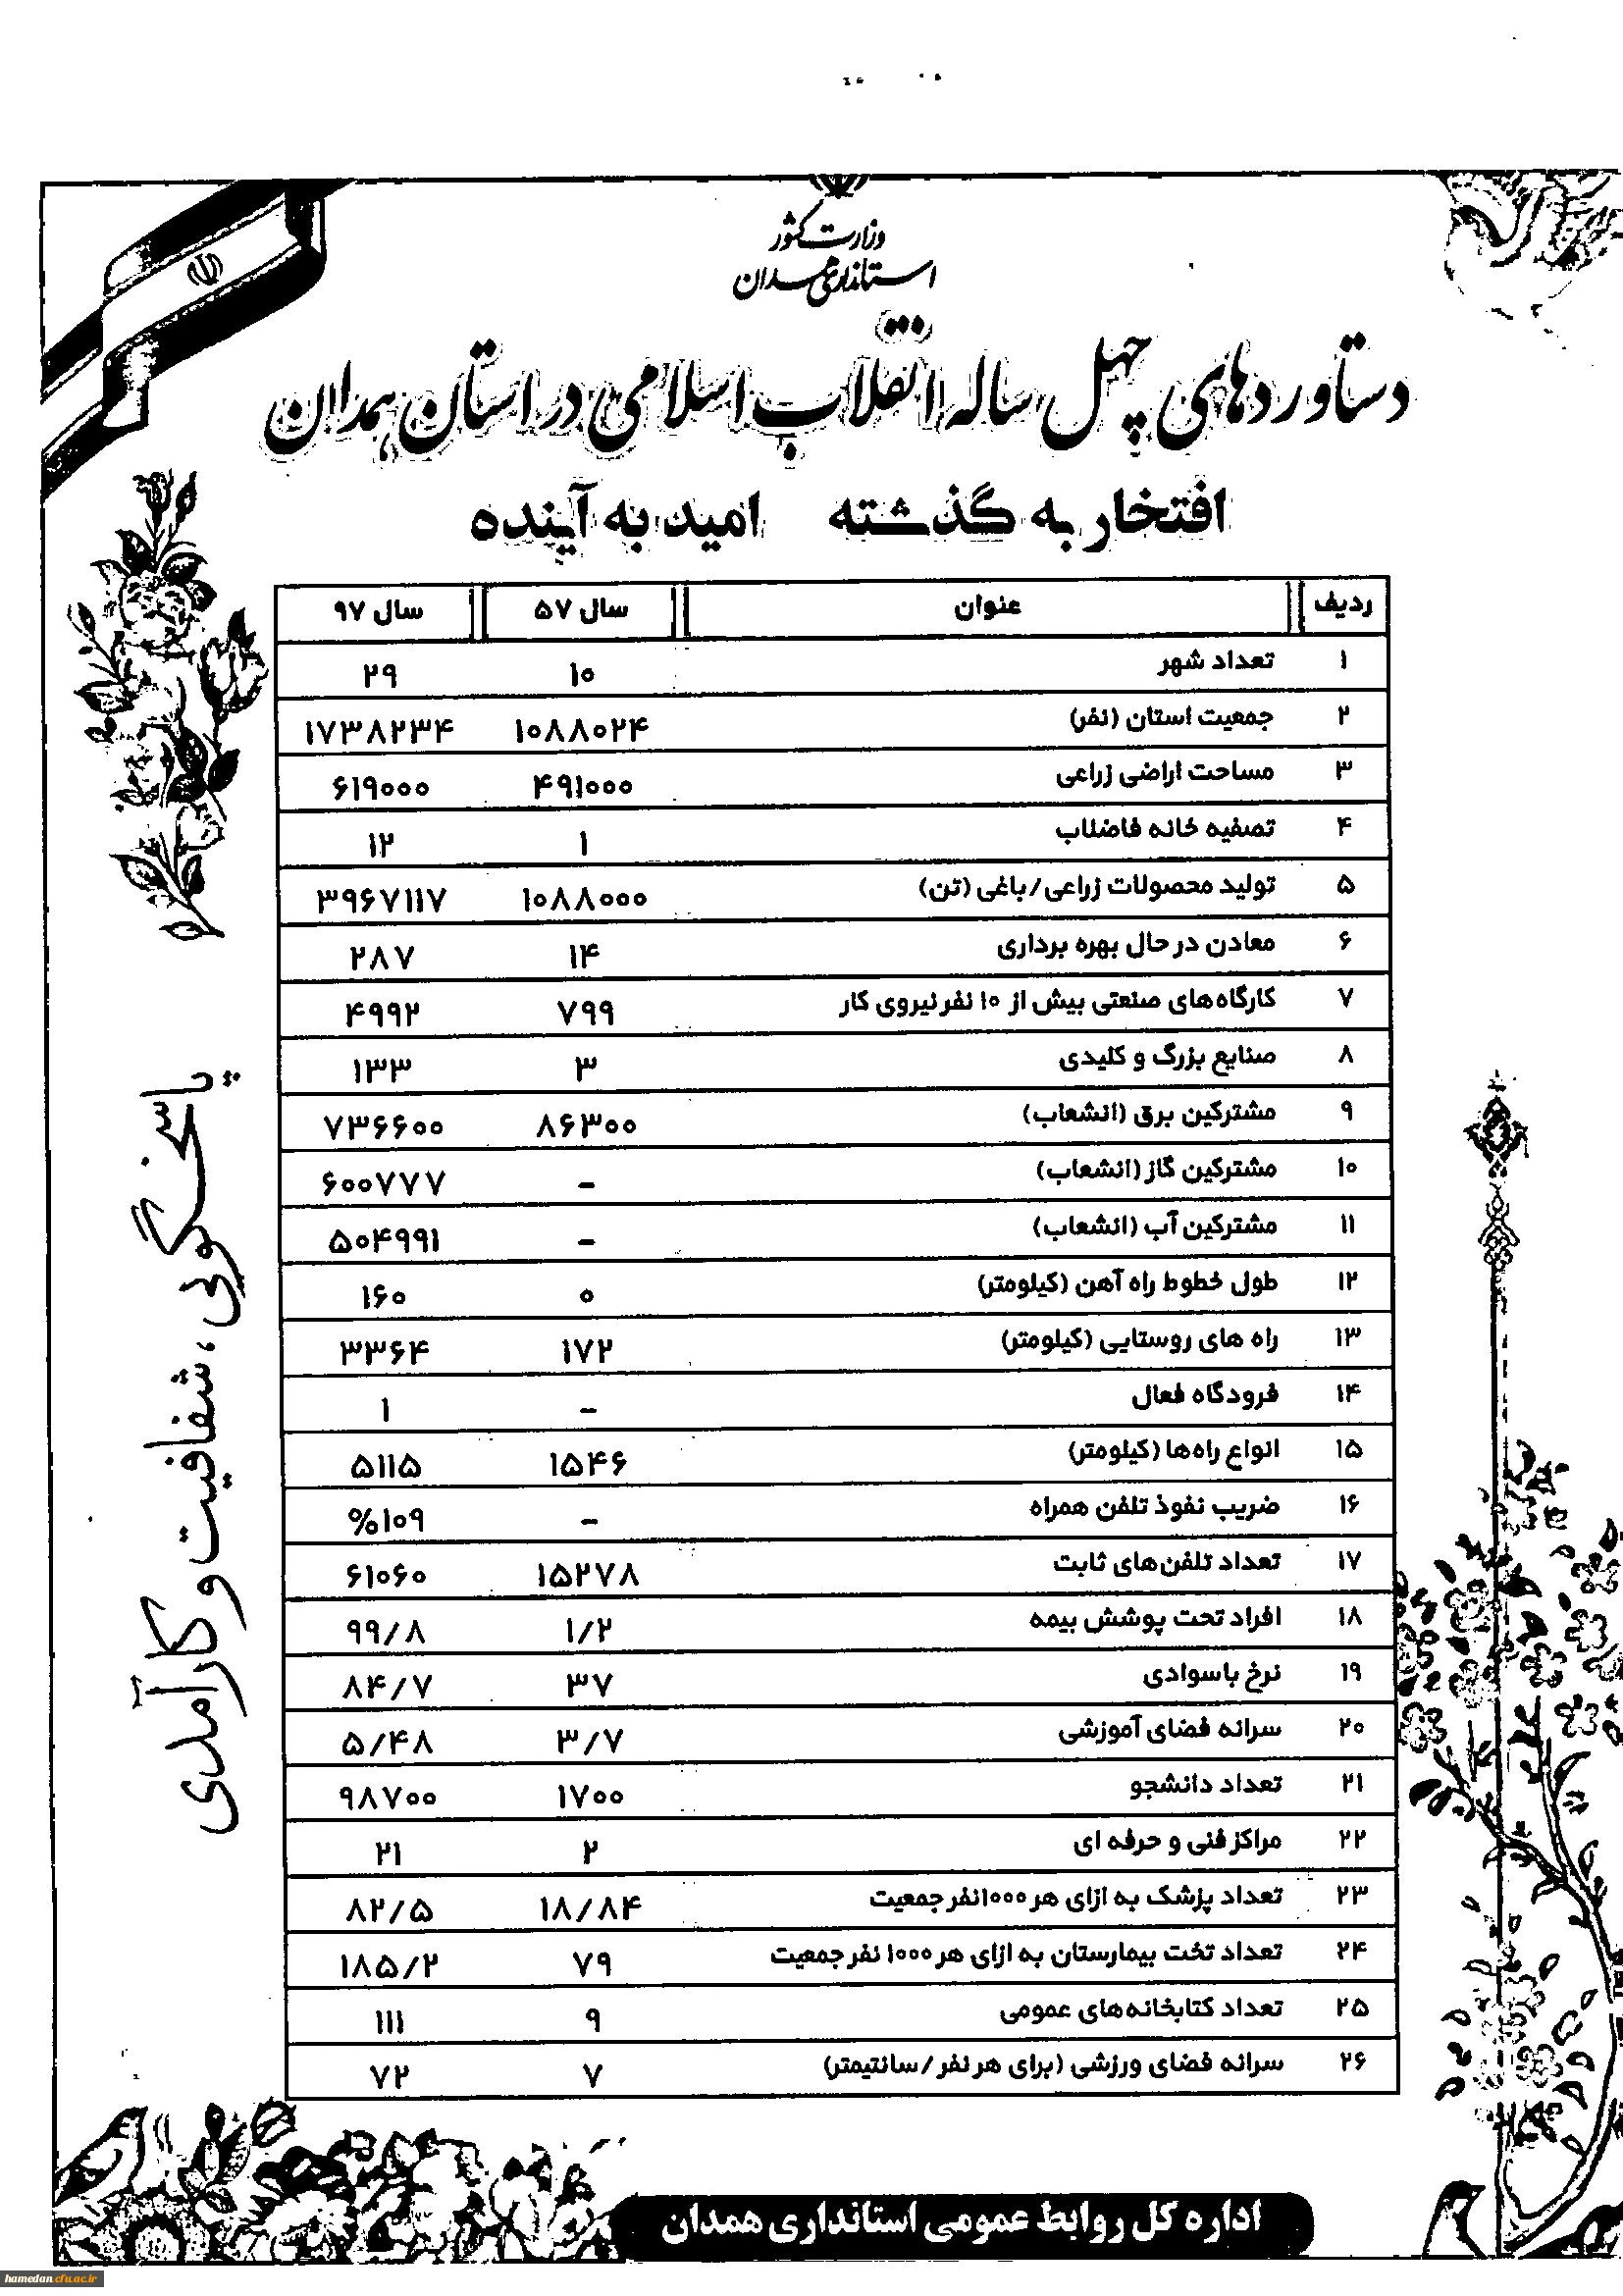 وزارت کشور
استانداری همدان
دستاوردهای چهل ساله انقلاب اسلامی در استان همدان
افتخار به گذشته امید به آینده
ردیف عنوان سال ۵۷ سال ۹۷
۱ تعداد شهر ۱۰ ۲۹
۲ جمعیت استان (نفر) ۱۰۸۸۰۲۴ ۱۷۳۸۲۳۴
۳ مساحت اراضی زراعی ۴۹۱۰۰۰ ۶۱۹۰۰۰
۴ تصفیه خانه فاضلاب ۱ ۱۲
۵ تولید محصولات زراعی/باغی (تن) ۱۰۸۸۰۰۰ ۳۹۶۷۱۱۷
۶ معادن در حال بهره برداری ۱۴ ۲۸۷
۷ کارگاه‌های صنعتی بیش از ۱۰ نفر نیروی کار ۷۹۹ ۴۹۹۲
۸ صنایع بزرگ و کلیدی ۳ ۱۳۳
۹ مشترکین برق (انشعاب) ۸۶۳۰۰ ۷۳۶۶۰۰
۱۰ مشترکین گاز (انشعاب) - ۶۰۰۷۷۷
۱۱ مشترکین آب (انشعاب) - ۵۰۴۹۹۱
۱۲ طول خطوط راه آهن (کیلومتر) ۰ ۱۶۰
۱۳ راه های روستایی (کیلومتر) ۱۷۲ ۳۳۶۴
۱۴ فرودگاه فعال - ۱
۱۵ انواع راه‌ها (کیلومتر) ۱۵۴۶ ۵۱۱۵
۱۶ ضریب نفوذ تلفن همراه - %۱۰۹
۱۷ تعداد تلفن‌های ثابت ۱۵۲۷۸ ۶۱۰۶۰
۱۸ افراد تحت پوشش بیمه ۱/۲ ۹۹/۸
۱۹ نرخ باسوادی ۳۷ ۸۴/۷
۲۰ سرانه فضای آموزشی ۳/۷ ۵/۴۸
۲۱ تعداد دانشجو ۱۷۰۰ ۹۸۷۰۰
۲۲ مراکز فنی و حرفه ای ۲ ۲۱
۲۳ تعداد پزشک به ازای هر ۱۰۰۰نفر جمعیت ۱۸/۸۴ ۸۲/۵
۲۴ تعداد تخت بیمارستان به ازای هر ۱۰۰۰ نفر جمعیت ۷۹ ۱۸۵/۲
۲۵ تعداد کتابخانه‌های عمومی ۹ ۱۱۱
۲۶ سرانه فضای ورزشی (برای هر نفر /سانتیمتر) ۷ ۷۲
پاسخگوئی، شفافیت و کارآمدی
اداره کل روابط عمومی استانداری همدان
hamedan.cfu.ac.ir